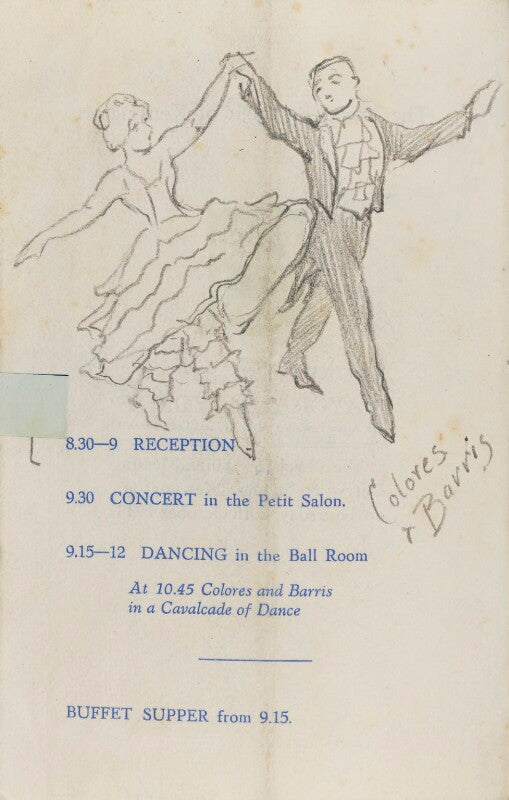 8.30—9 RECEPTION
9.30 CONCERT in the Petit Salon.
Colores
+ Barris
9.15—12 DANCING in the Ball Room
At 10.45 Colores and Barris
in a Cavalcade of Dance
BUFFET SUPPER from 9.15.